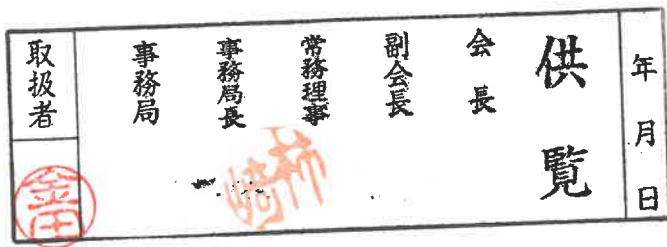 年月日
供覧
会長
副会長
常務理事
事務局長
事務局
取扱者
金田